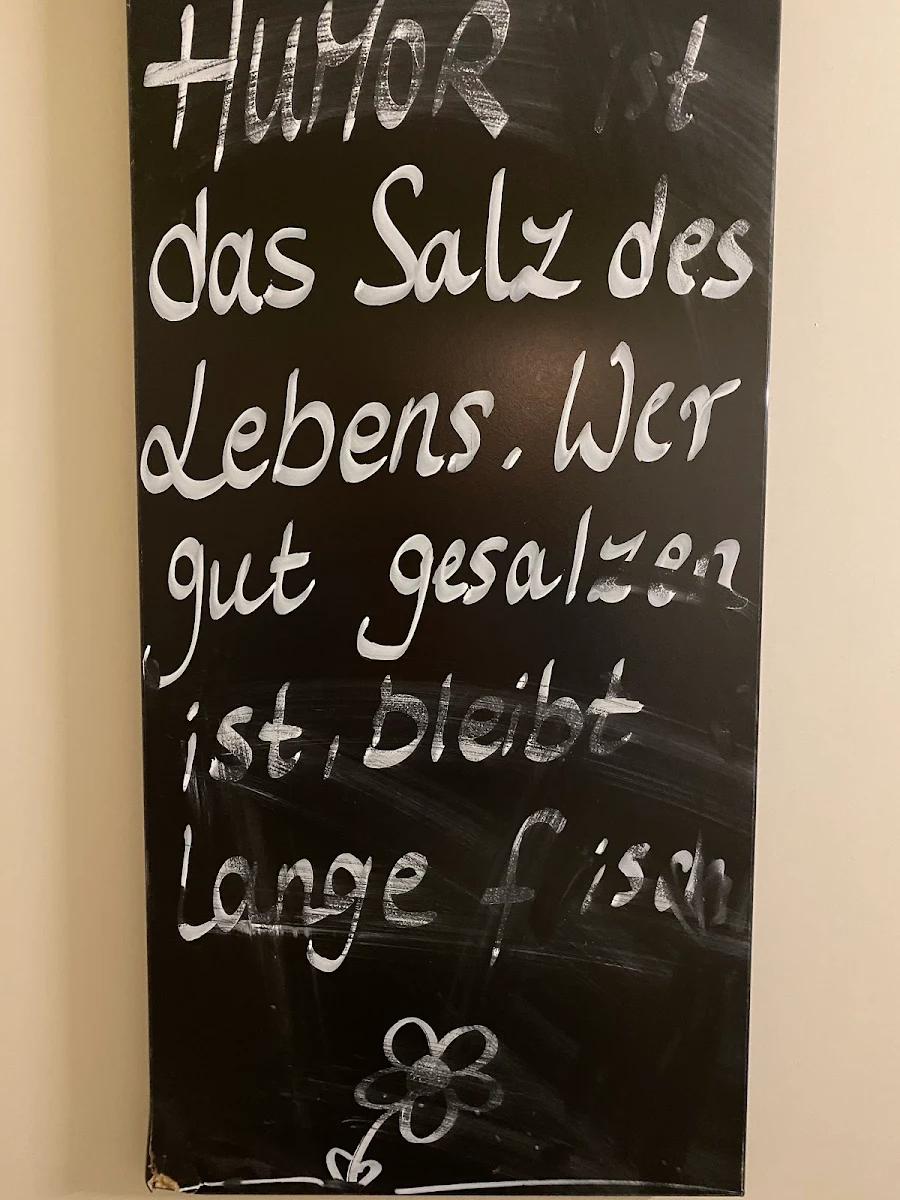 HUMOR ist
das Salz des
Lebens. Wer
gut gesalzen
ist, bleibt
lange f isch